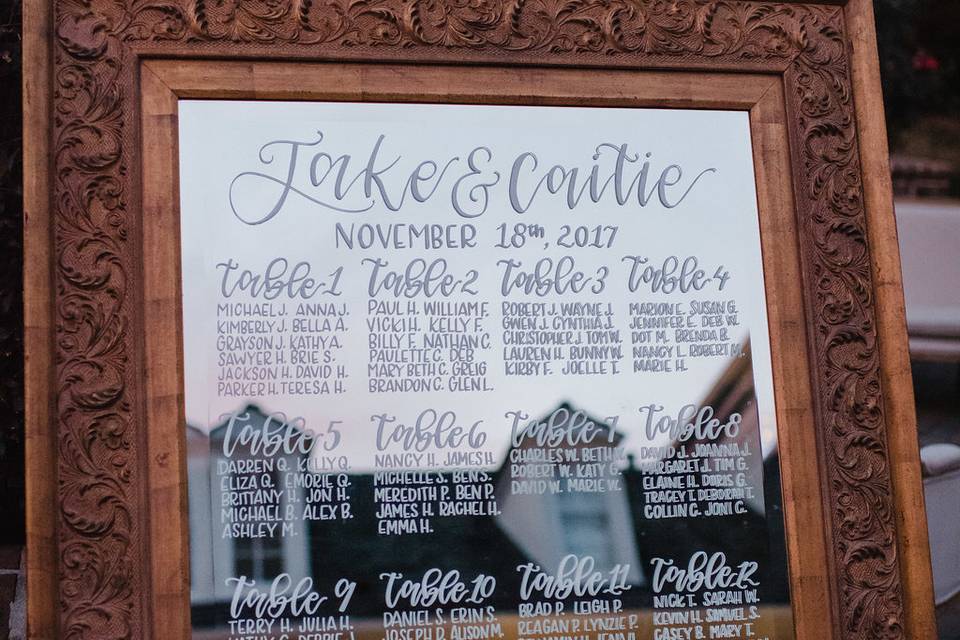 Jake & Caitie
NOVEMBER 18th, 2017
Table 1
MICHAEL J. ANNA J.
KIMBERLY J. BELLA A.
GRAYSON J. KATHY A.
SAWYER H. BRIE S.
JACKSON H. DAVID H.
PARKER H. TERESA H.
Table 2
PAUL H. WILLIAM F.
VICKI H. KELLY F.
BILLY F. NATHAN C.
PAULETTE C. DEB
MARY BETH C. GREIG
BRANDON C. GLEN L.
Table 3
ROBERT J. WAYNE J.
GWEN J. CYNTHIA J.
CHRISTOPHER J. TOM W.
LAUREN H. BUNNY W.
KIRBY F. JOELLE T.
Table 4
MARION E. SUSAN G.
JENNIFER E. DEB W.
DOT M. BRENDA B.
NANCY L. ROBERT M.
MARIE H.
Table 5
DARREN Q. KELLY Q.
ELIZA Q. EMORIE Q.
BRITTANY H. JON H.
MICHAEL B. ALEX B.
ASHLEY M.
Table 6
NANCY H. JAMES H.
MICHELLE S. BEN S.
MEREDITH P. BEN P.
JAMES H. RACHEL H.
EMMA H.
Table 7
CHARLES W. BETH W.
ROBERT W. KATY G.
DAVID W. MARIE W.
Table 8
DAVID J. JOANNA J.
MARGARET J. TIM G.
ELAINE H. DORIS G.
TRACEY T. DEBORAH T.
COLLIN G. JONI G.
Table 9
TERRY H. JULIA H.
Table 10
DANIEL S. ERIN S.
JOSEPH D. ALISON M.
Table 11
BRAD P. LEIGH P.
REAGAN P. LYNZIE P.
Table 12
NICK T. SARAH W.
KEVIN H. SAMUEL S.
CASEY B. MARY T.